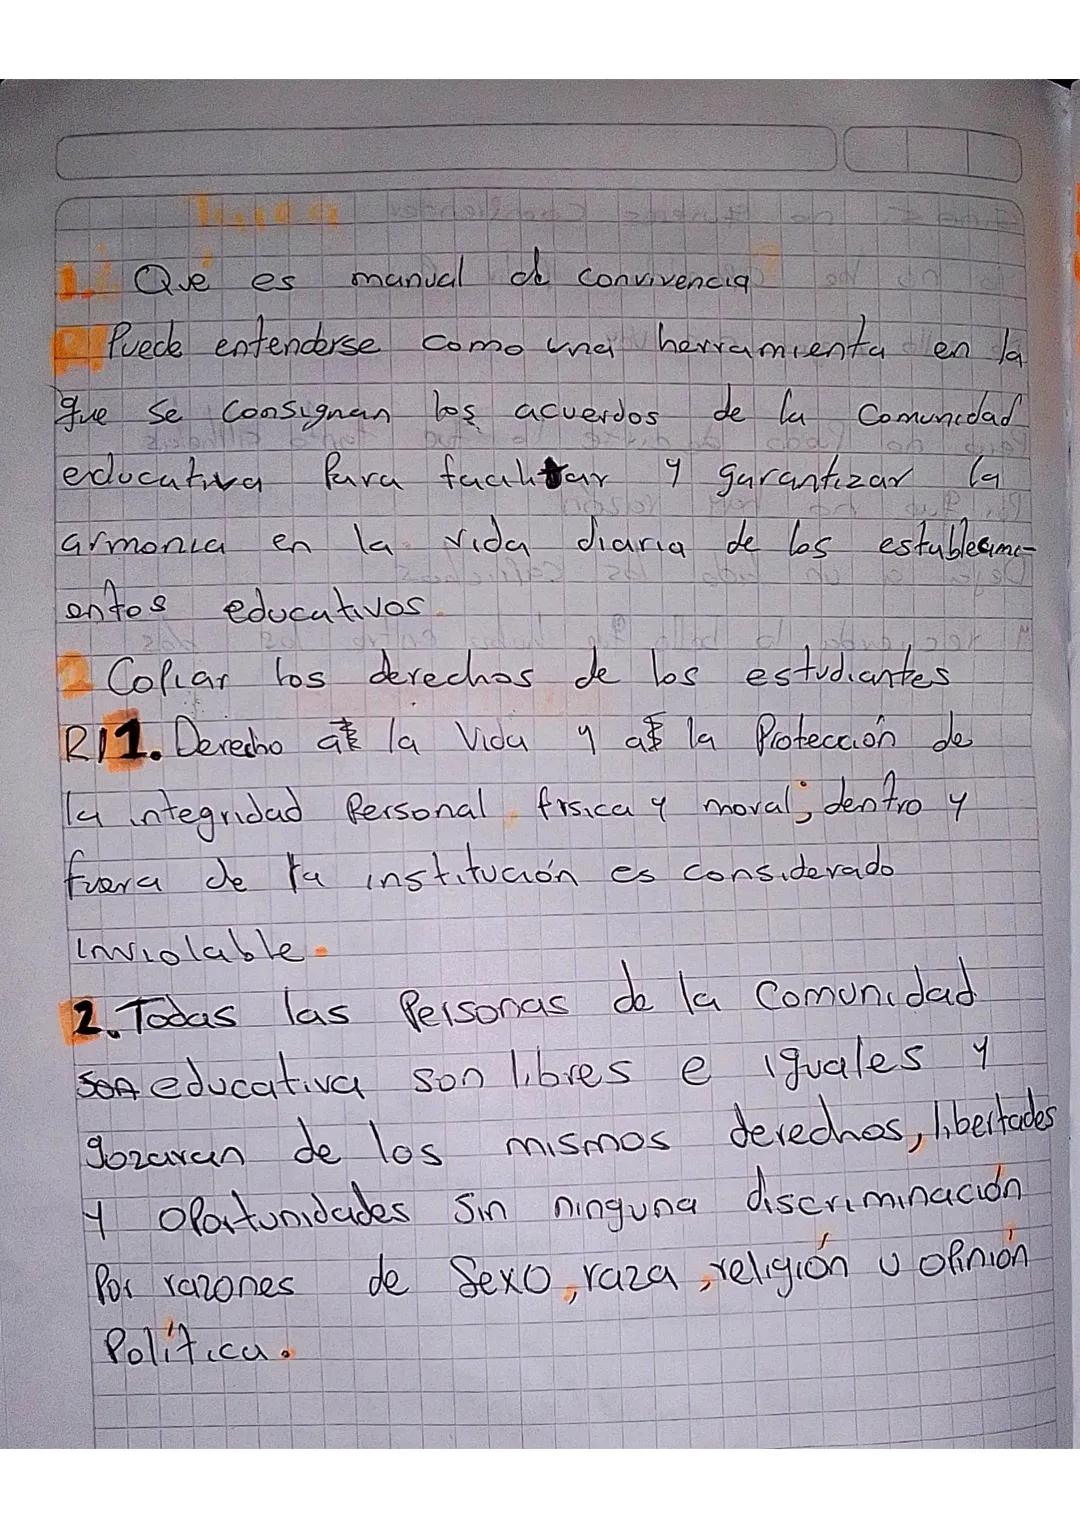 1. Qué es manual de convivencia
R/ Puede entenderse como una herramienta en la
que se consignan los acuerdos de la Comunidad
educativa Para facilitar y garantizar la
armonia en la vida diaria de los establecimi-
entos educativos.
2 Copiar los derechos de los estudiantes
R/1. Derecho a la Vida y a la Protección de
la integridad Personal, física y moral; dentro y
fuera de la institución es considerado
inviolable.
2. Todas las Personas de la Comunidad
son educativa son libres e iguales y
gozaran de los mismos derechos, libertades
y oportunidades sin ninguna discriminación
Por razones de Sexo, raza, religión u opinión
Política.